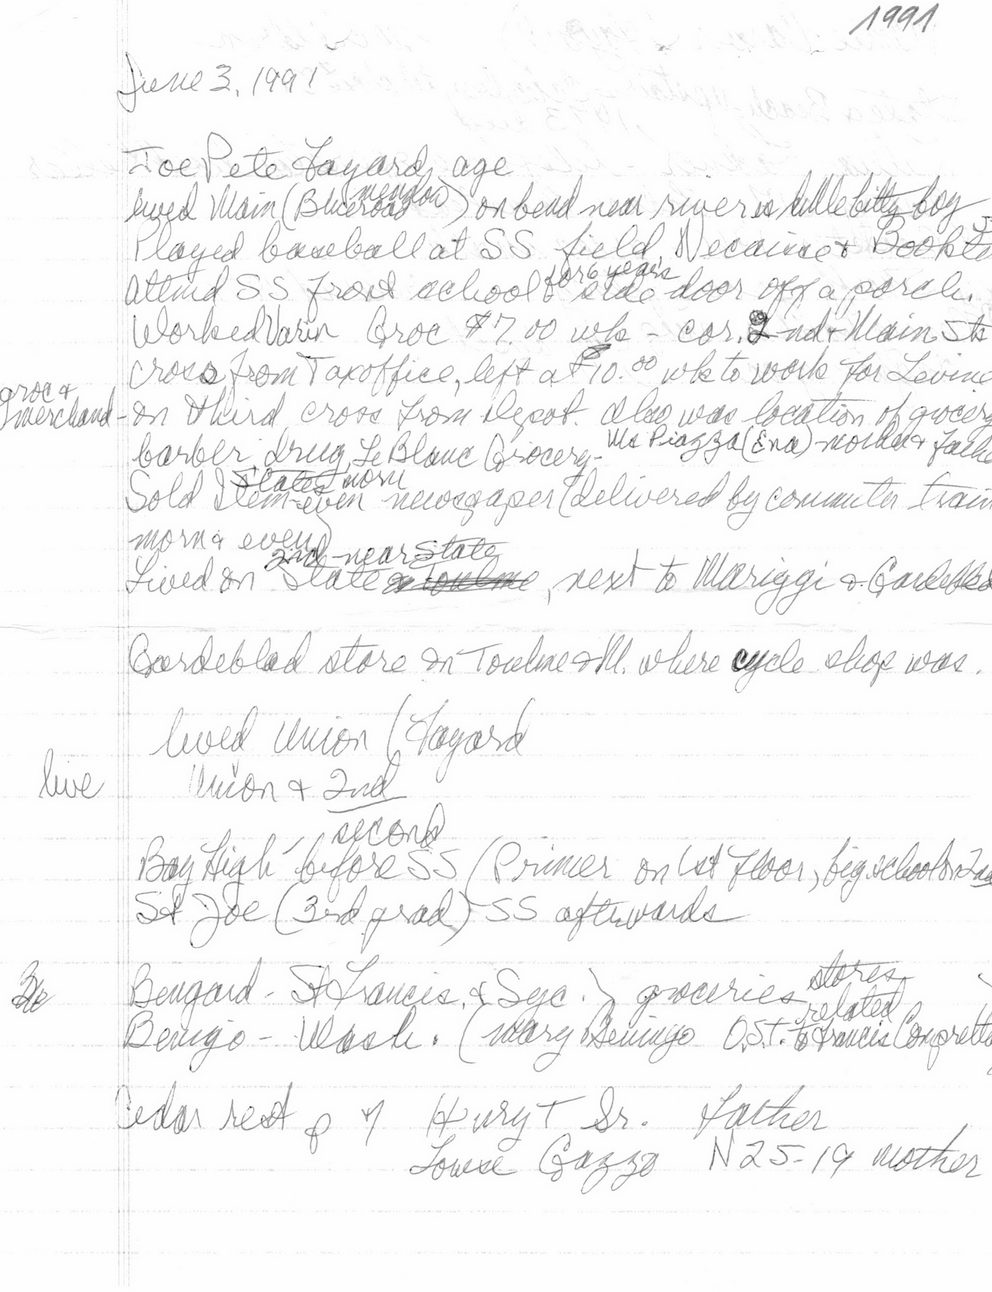 1991
June 3, 1991
Joe Pete Fayard, age
lived Main (Blue meadow) on bend near river is little bitty boy
Played baseball at SS field, Necaise & Book
attend SS front school & side door off a porch. for 6 years
Worked Varin Groc $7.00 wk - cor. 2nd & Main Sts
cross from Taxoffice, left at $10.00 wk to work for Levine
groc & merchand - on third cross from depot. Also was location of grocery
barber drug, LeBlanc Grocery - Ms Piazza (Ena) mother & father
States morn
Sold Item - even newspaper (delivered by commuter train
morn & even)
2nd near State
Lived on State & Toulme, next to Mariggi & Gardebled
Gardeblad store on Toulme & M. where cycle shop was.
lived Union (Fayard
live Union & 2nd
second
Bay High before SS (Primer on 1st floor, big school on 2nd
St Joe (3rd grad) SS afterwards
Bengard - St Francis, & Syc.) groceries stores
Benigo - Wash. (Mary Benigo O.S.T. related to Francis Compretta
Cedar rest p 7 Hury T Sr. Father
Louise Gazzo N 25-19 mother